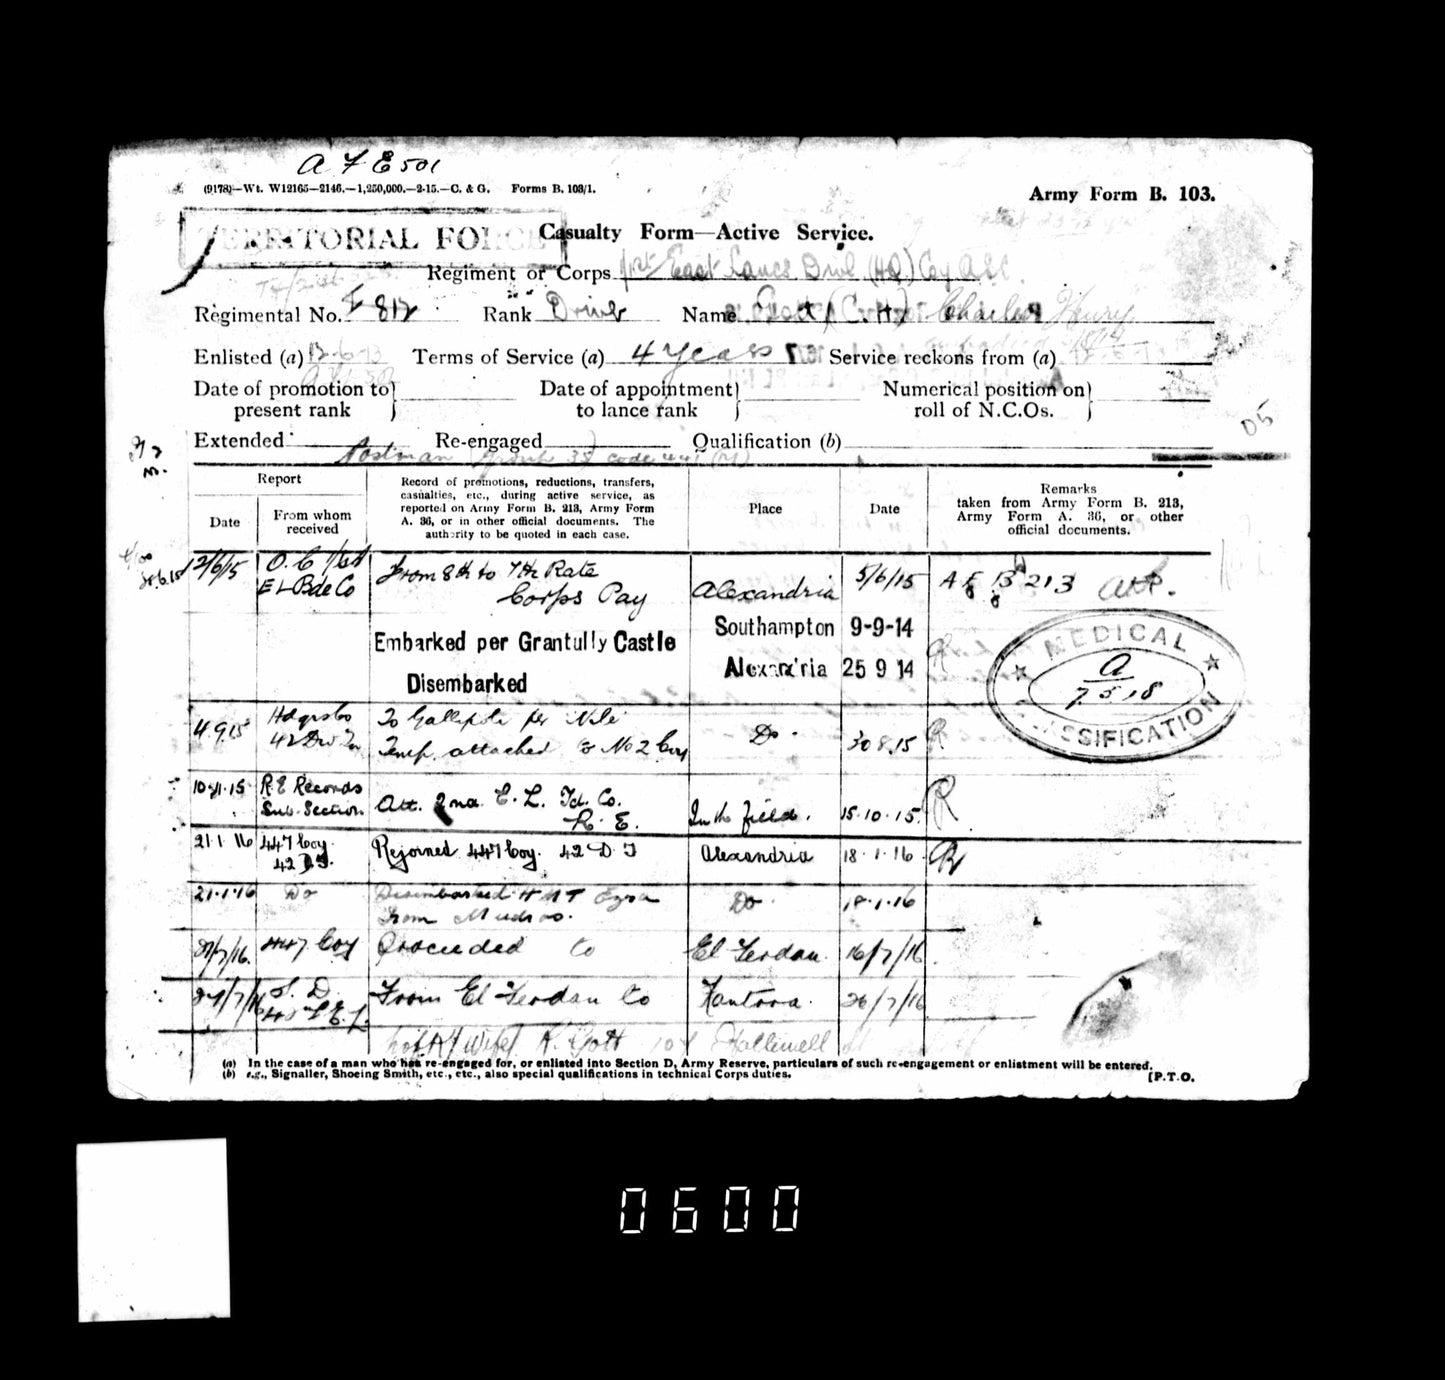 A F E 501
(9178)—Wt. W12165—2146.—1,250,000.—2-15.—C. & G. Forms B. 103/1.
Army Form B. 103.
TERRITORIAL FORCE
Casualty Form—Active Service.
Regiment or Corps East Lancs Divl (HQ) Coy ASC
Regimental No. 812 Rank Driver Name Gott (C. H.) Charles Henry
Enlisted (a) Terms of Service (a) 4 years Service reckons from (a)
Date of promotion to present rank
Date of appointment to lance rank
Numerical position on roll of N.C.Os.
D5
Extended Re-engaged Qualification (b)
Postman Group 33 code
Report
Date
From whom received
Record of promotions, reductions, transfers,
casualties, etc., during active service, as
reported on Army Form B. 213, Army Form
A. 36, or in other official documents. The
authority to be quoted in each case.
Place
Date
Remarks
taken from Army Form B. 213,
Army Form A. 36, or other
official documents.
12/6/15 O. C 1/East From 8th to 7th Rate 5/6/15 A F B 213
E L Bde Co Corps Pay Alexandria
Embarked per Grantully Castle Southampton 9-9-14
Disembarked Alexandria 25 9 14
MEDICAL
A
7.5.18
CLASSIFICATION
4.9.15 Hdqrs Co To Gallipoli per Nile Do 30 8.15 R
42 Div Tn Temp. attached to No 2 Coy
10.11.15 R.E Records Att. 2nd E. L. Fd. Co. In the field. 15.10.15. R
Sub-Section R. E.
21.1.16 447 Coy. Rejoined 447 Coy. 42 D T Alexandria 18.1.16 R
42 D.T.
21.1.16 Do Disembarked H M T Ezra Do 18.1.16
from Mudros.
447 Coy Proceeded to El Ferdan. 16/7/16
From El Ferdan to Kantara. 26/7/16
Wife K. Gott Halliwell
(a) In the case of a man who has re-engaged for, or enlisted into Section D, Army Reserve, particulars of such re-engagement or enlistment will be entered.
(b) e.g., Signaller, Shoeing Smith, etc., etc., also special qualifications in technical Corps duties.
[P.T.O.
0600